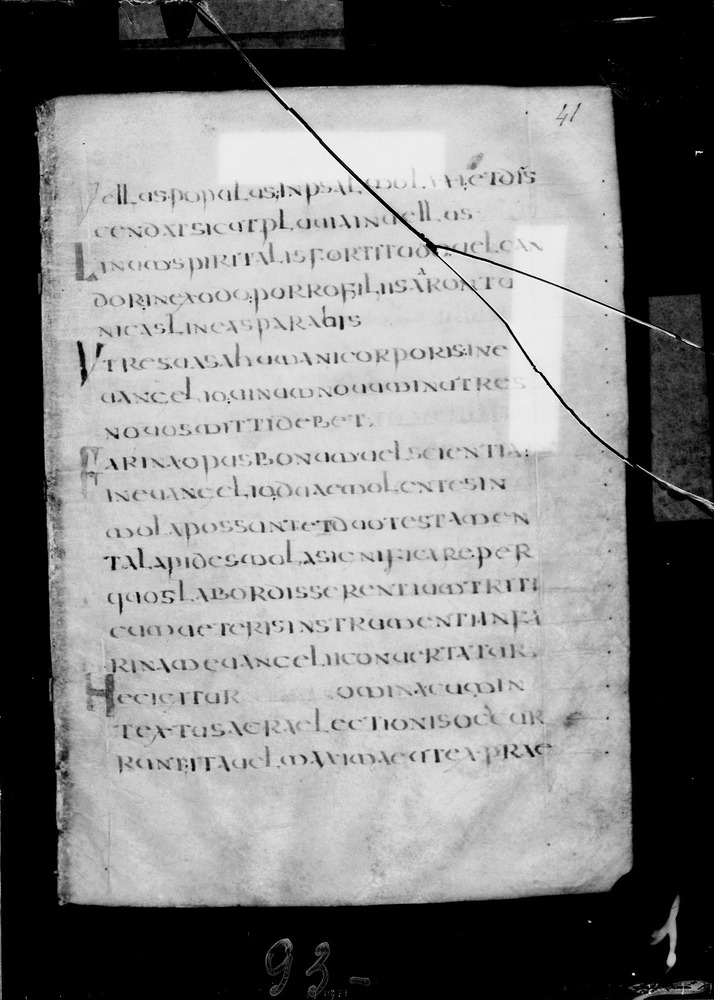 41
uellus populus; in psalmo LXXI et dis
cendat sicut pluuia in uellus
Linum spiritalis fortitudo uel can
dor in exodo porro filiis aron tu
nicas lineas parabis
Utres uasa humani corporis; in e
uangelio uinum nouum in utres
nouos mitti debet.
Farina opus bonum uel scientia;
in euangelio duae molentes in
mola possunt et duo testamen
ta lapides mola significare per
quos labor disserentium tritι
cum ueteris instrumenti in fa
rinam euangelii conuertatur.
Hec igitur omina cum in
textu sacrae lectionis occur
runt ita uel maxime aeut exprae
93-
1